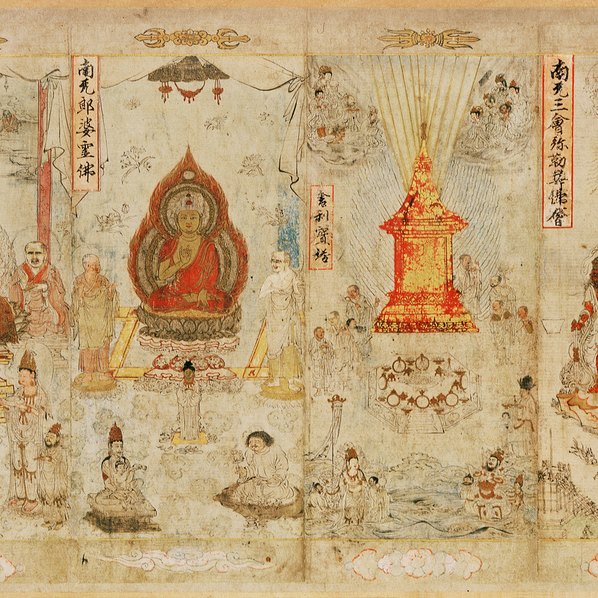 南无三會弥勒尊佛會
舍利寶塔
南无郎婆靈佛